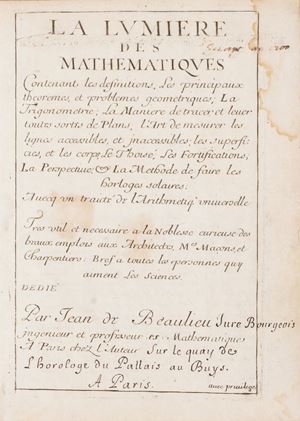 LA LVMIERE
DES
MATHEMATIQVES
Contenant les definitions, Les principaux
theoremes, et problemes geometriques, La
Trigonometrie; La Maniere de tracer et lever
toutes sortes de Plans, l'Art de mesurer les
lignes accessibles, et jnaccessibles; les superfi
cies, et les corps, Le Thoisé; Les Fortifications,
La Perspective; & La Methode de faire les
horloges solaires.
Avecq vn traitté de l'Arithmetiq vniverselle
Tres vtil et necessaire a la Noblesse curieuse des
beaux emplois aux Architectes, Mes. Macons, et
Charpentiers: Bref a toutes les personnes quy
aiment Les Sciences.
DEDIÉ
Par Jean de Beaulieu Juré Bourgeois
jngenieur et professeur es Mathematiques
A Paris chez l'Auteur Sur le quay de
Lhorologe du Pallais au Buys.
A Paris.
avec privilege